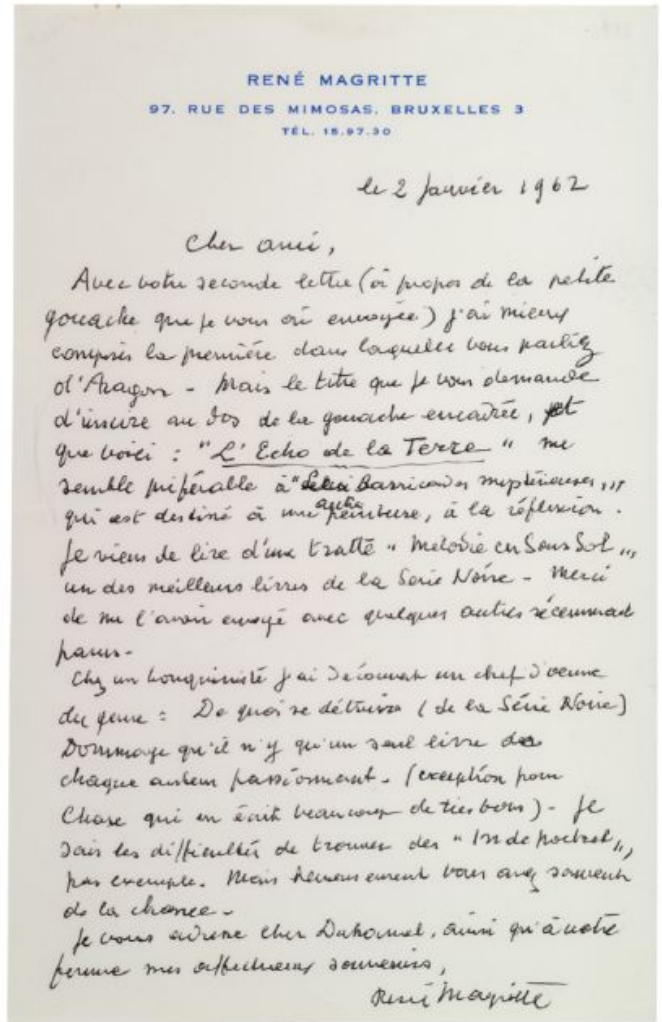 RENÉ MAGRITTE
97, RUE DES MIMOSAS, BRUXELLES 3
TÉL. 15.97.30
le 2 Janvier 1962
Cher ami,
Avec votre seconde lettre (à propos de la petite
gouache que je vous ai envoyée) j'ai mieux
compris la première dans laquelle vous parliez
d'Aragon - Mais le titre que je vous demande
d'inscrire au dos de la gouache encadrée, et
que voici : "L'Echo de la Terre" me
semble préférable à "Barricades mystérieuses",
qui est destiné à une autre peinture, à la réflexion.
Je viens de lire d'une traite "Mélodie en Sous Sol",
un des meilleurs livres de la Série Noire - Merci
de me l'avoir envoyé avec quelques autres récemment
parus -
Chez un bouquiniste j'ai découvert un chef d'oeuvre
du genre : De quoi se détruire (de la Série Noire)
Dommage qu'il n'y qu'un seul livre de
chaque auteur passionnant - (exception pour
Chase qui en écrit beaucoup de très bons) - Je
sais les difficultés de trouver des
par exemple. Mais heureusement vous avez souvent
de la chance -
Je vous adresse cher Duhamel, ainsi qu'à votre
femme mes affectueux souvenirs,
René Magritte